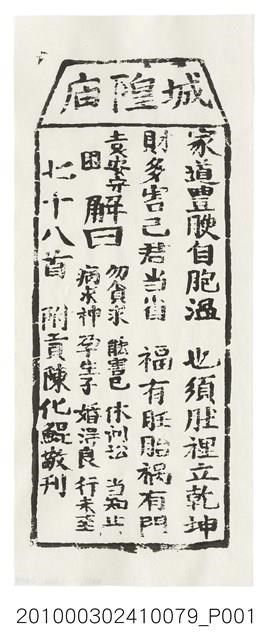 城隍庙
家道豐腴自胞温 也須肚裡立乾坤
財多害己君當省 福有胚胎禍有門
袁安守困 解曰
勿貪求 能害己 休訓訟 當知止
病求神 孕生子 婚得良 行未至
七十八首 附貢陳化鯤敬刊
201000302410079_P001